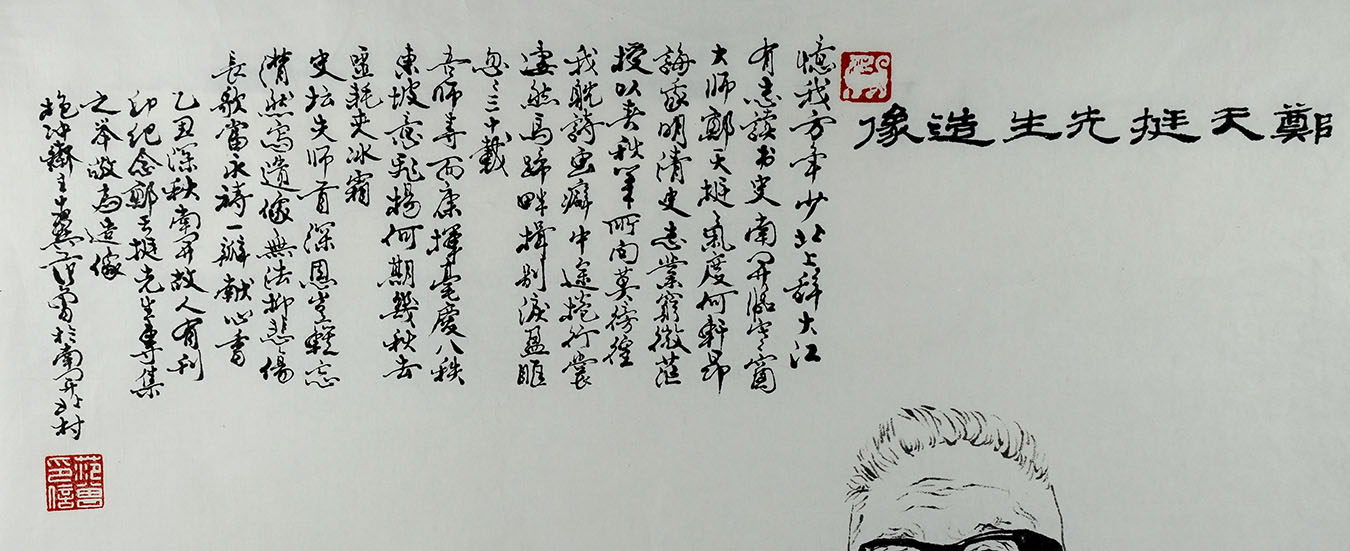 鄭天挺先生造像
憶我方年少北上辞大江
有志读书史南開临芸窗
大师鄭天挺氣度何軒昂
誨家明清史志業窮微茫
授以春秋筆所向莫徬徨
我躭詩畫癖中途捲行裳
凄然馬蹄畔揖别淚盈眶
忽忽三十載
吾师壽而康揮毫慶八秩
東坡意飛揚何期幾秋去
噩耗夹冰霜
史坛失师首深恩岂輕忘
潸然寫遺像無法抑悲傷
長歌當永祷一瓣献心香
乙丑深秋南開故人有刊
印纪念鄭天挺先生專集
之举敬为造像
抱冲齋主十翼范曾於南開北村
范曾印信